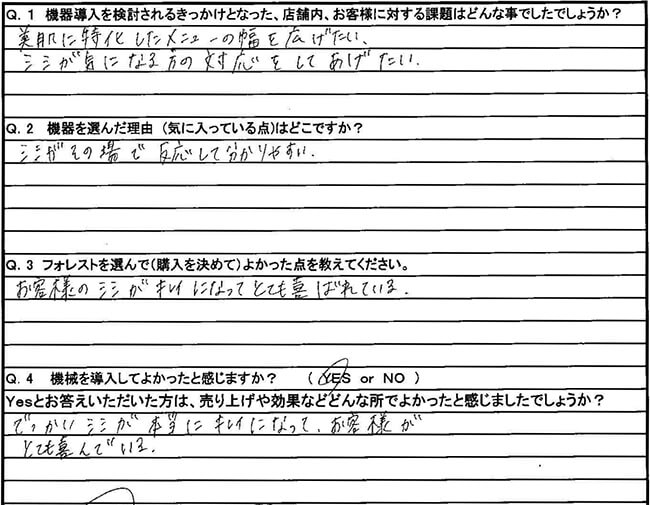 Q. 1 機器導入を検討されるきっかけとなった、店舗内、お客様に対する課題はどんな事でしたでしょうか?
美肌に特化したメニューの幅を広げたい、
シミが気になる方の対応をしてあげたい.
Q. 2 機器を選んだ理由 (気に入っている点)はどこですか?
シミがその場で反応して分かりやすい.
Q. 3 フォレストを選んで(購入を決めて)よかった点を教えてください。
お客様のシミがキレイになってとても喜ばれている.
Q. 4 機械を導入してよかったと感じますか? ( YES or NO )
Yesとお答えいただいた方は、売り上げや効果などどんな所でよかったと感じましたでしょうか?
でっかいシミが本当にキレイになって、お客様が
とても喜んでいる.